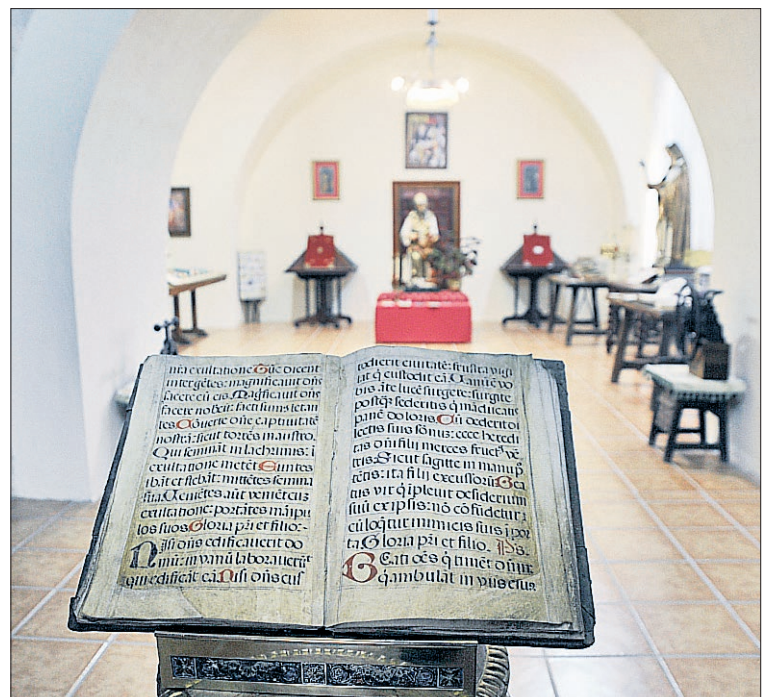 n̄ra exultatione Tūc dicent
inter gētes: magnificauit dn̄s
facere cū eis. Magficauit dn̄s
facere nobiscū: facti sumus letan
tes Cōuerte dn̄e captiuitatē
nostrā: sicut torrēs in austro.
Qui semināt in lachrimis: i
exultatione metēt Euntes
ibāt et flebāt: mittētes semina
sua Uenietes aūt veniēt cuz
exultatione: portātes manipu
los suos Gloria pr̄i et filio:·
Nisi dn̄s edificauerit do
mū: in vanū laborauerūt
qui edificāt eā Nisi dn̄s cus
todierit ciuitatē: frustra vigi
lat q̄ custodit eā Uanū ē vo
bis āte lucē surgere: surgite
postq̄ sederitis q̄ māducatis
panē doloris Cū dederit di
lectis suis sōnū: ecce heredi
tas dn̄i filij merces fruct9 vē
tris. Sicut sagitte in manu p̄
tētis: ita filij excussorū Bea
tus vir q̄ ipleuit desideriuz
suū ex ipsis: nō cōfūdetur
cū loq̄tur inimicis suis i por
ta Gloria pr̄i et filio. Ps.
Beati oēs q̄ timēt dn̄m:
q̄ ambulāt in vijs eius.